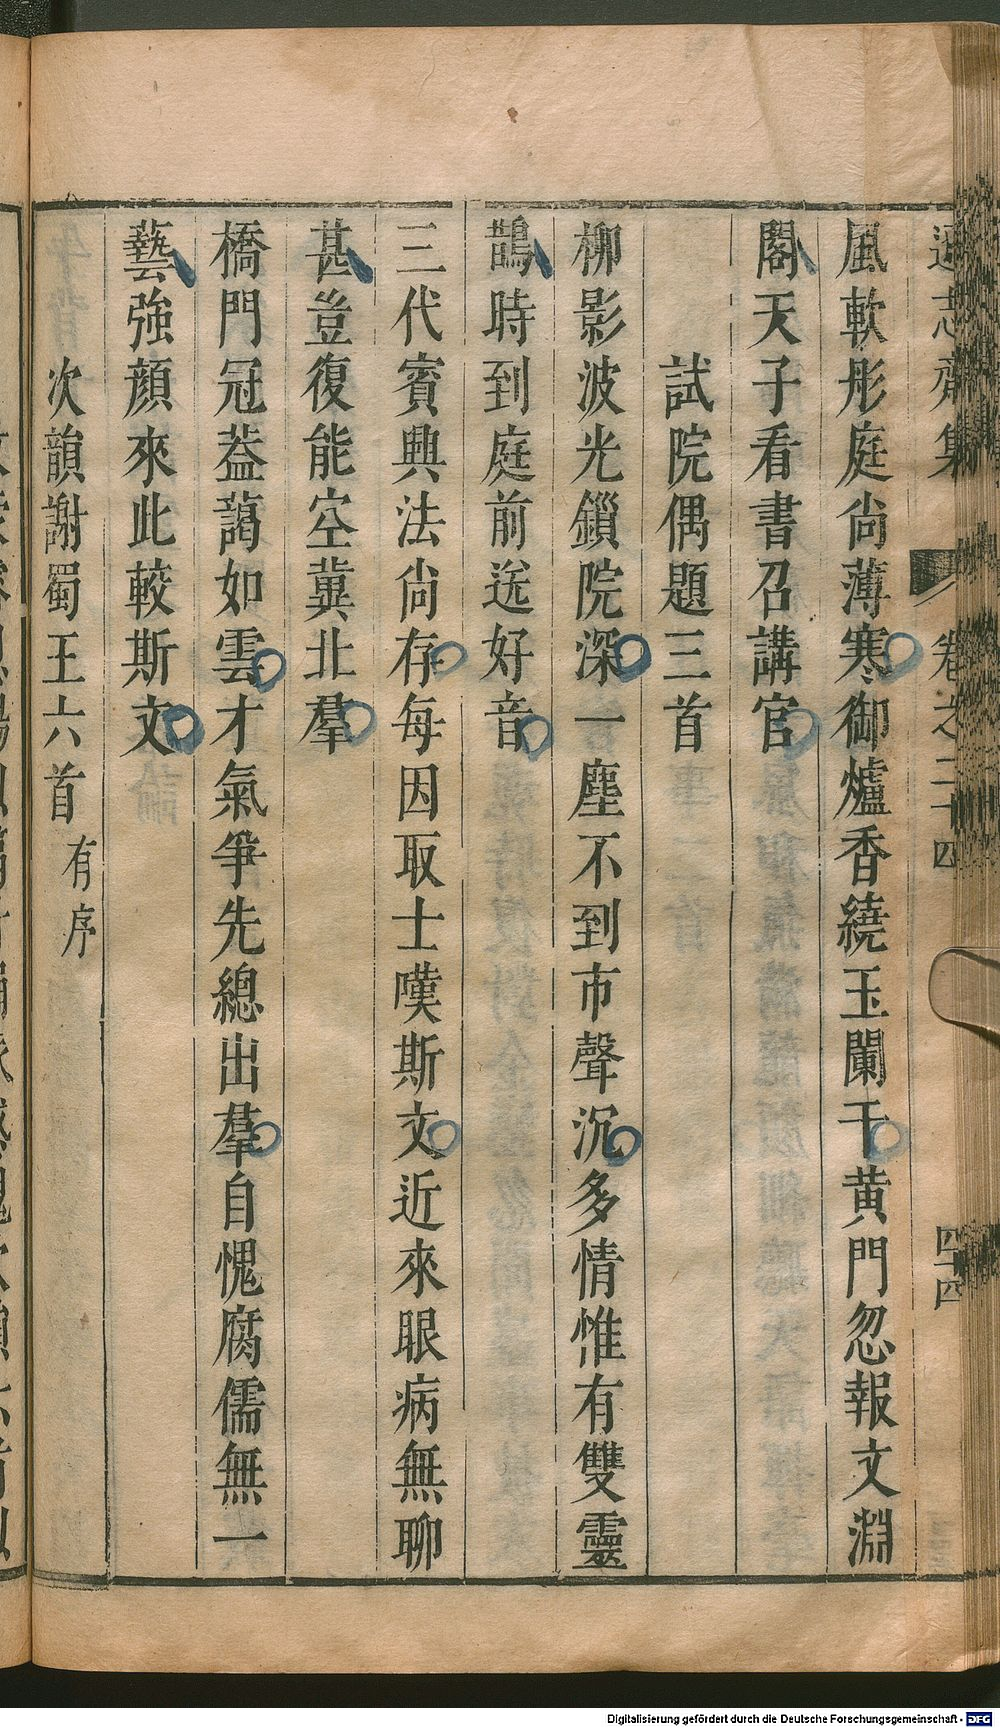 遜志齋集 卷之二十四 四十四
風軟彤庭尚薄寒御爐香繞玉闌干黄門忽報文淵
閣天子看書召講官
試院偶題三首
柳影波光鎻院深一塵不到市聲沉多情惟有雙靈
鵲時到庭前送好音
三代賓興法尚存每因取士嘆斯文近來眼病無聊
甚豈復能空冀北羣
橋門冠葢藹如雲才氣爭先總出羣自愧腐儒無一
藝強顔來此較斯文
次韻謝蜀王六首 有序
Digitalisierung gefördert durch die Deutsche Forschungsgemeinschaft - DFG